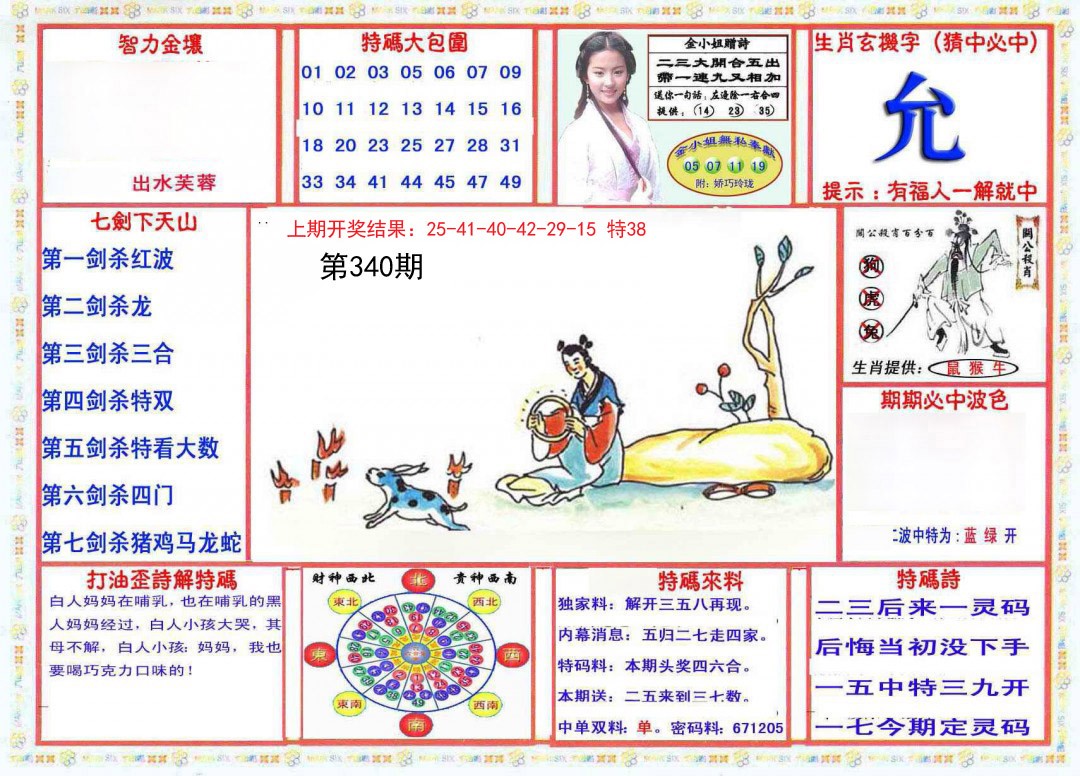 智力金壤
出水芙蓉
特碼大包圍
01 02 03 05 06 07 09
10 11 12 13 14 15 16
18 20 23 25 27 28 31
33 34 41 44 45 47 49
金小姐赠詩
二三大開合五出
帶一連九又相加
送你一句話，左邊除一右合四
提供：(14) 23) 35)
金小姐無私奉獻
05 07 11 19
附：娇巧玲珑
生肖玄機字（猜中必中）
允
提示：有福人一解就中
七劍下天山
第一剑杀红波
第二剑杀龙
第三剑杀三合
第四剑杀特双
第五剑杀特看大数
第六剑杀四门
第七剑杀猪鸡马龙蛇
上期开奖结果：25-41-40-42-29-15 特38
第340期
關公殺肖百分百
關公殺肖
狗
虎
兔
生肖提供：鼠 猴 牛
期期必中波色
二波中特为：蓝 绿 开
打油歪詩解特碼
白人妈妈在哺乳，也在哺乳的黑
人妈妈经过，白人小孩大哭，其
母不解，白人小孩：妈妈，我也
要喝巧克力口味的！
财神西北
贵神西南
北
東北
西北
東
西
東南
西南
南
特碼來料
独家料：解开三五八再现。
内幕消息：五归二七走四家。
特码料：本期头奖四六合。
本期送：二五来到三七数。
中单双料：单。密码料：671205
特碼詩
二三后来一灵码
后悔当初没下手
一五中特三九开
一七今期定灵码